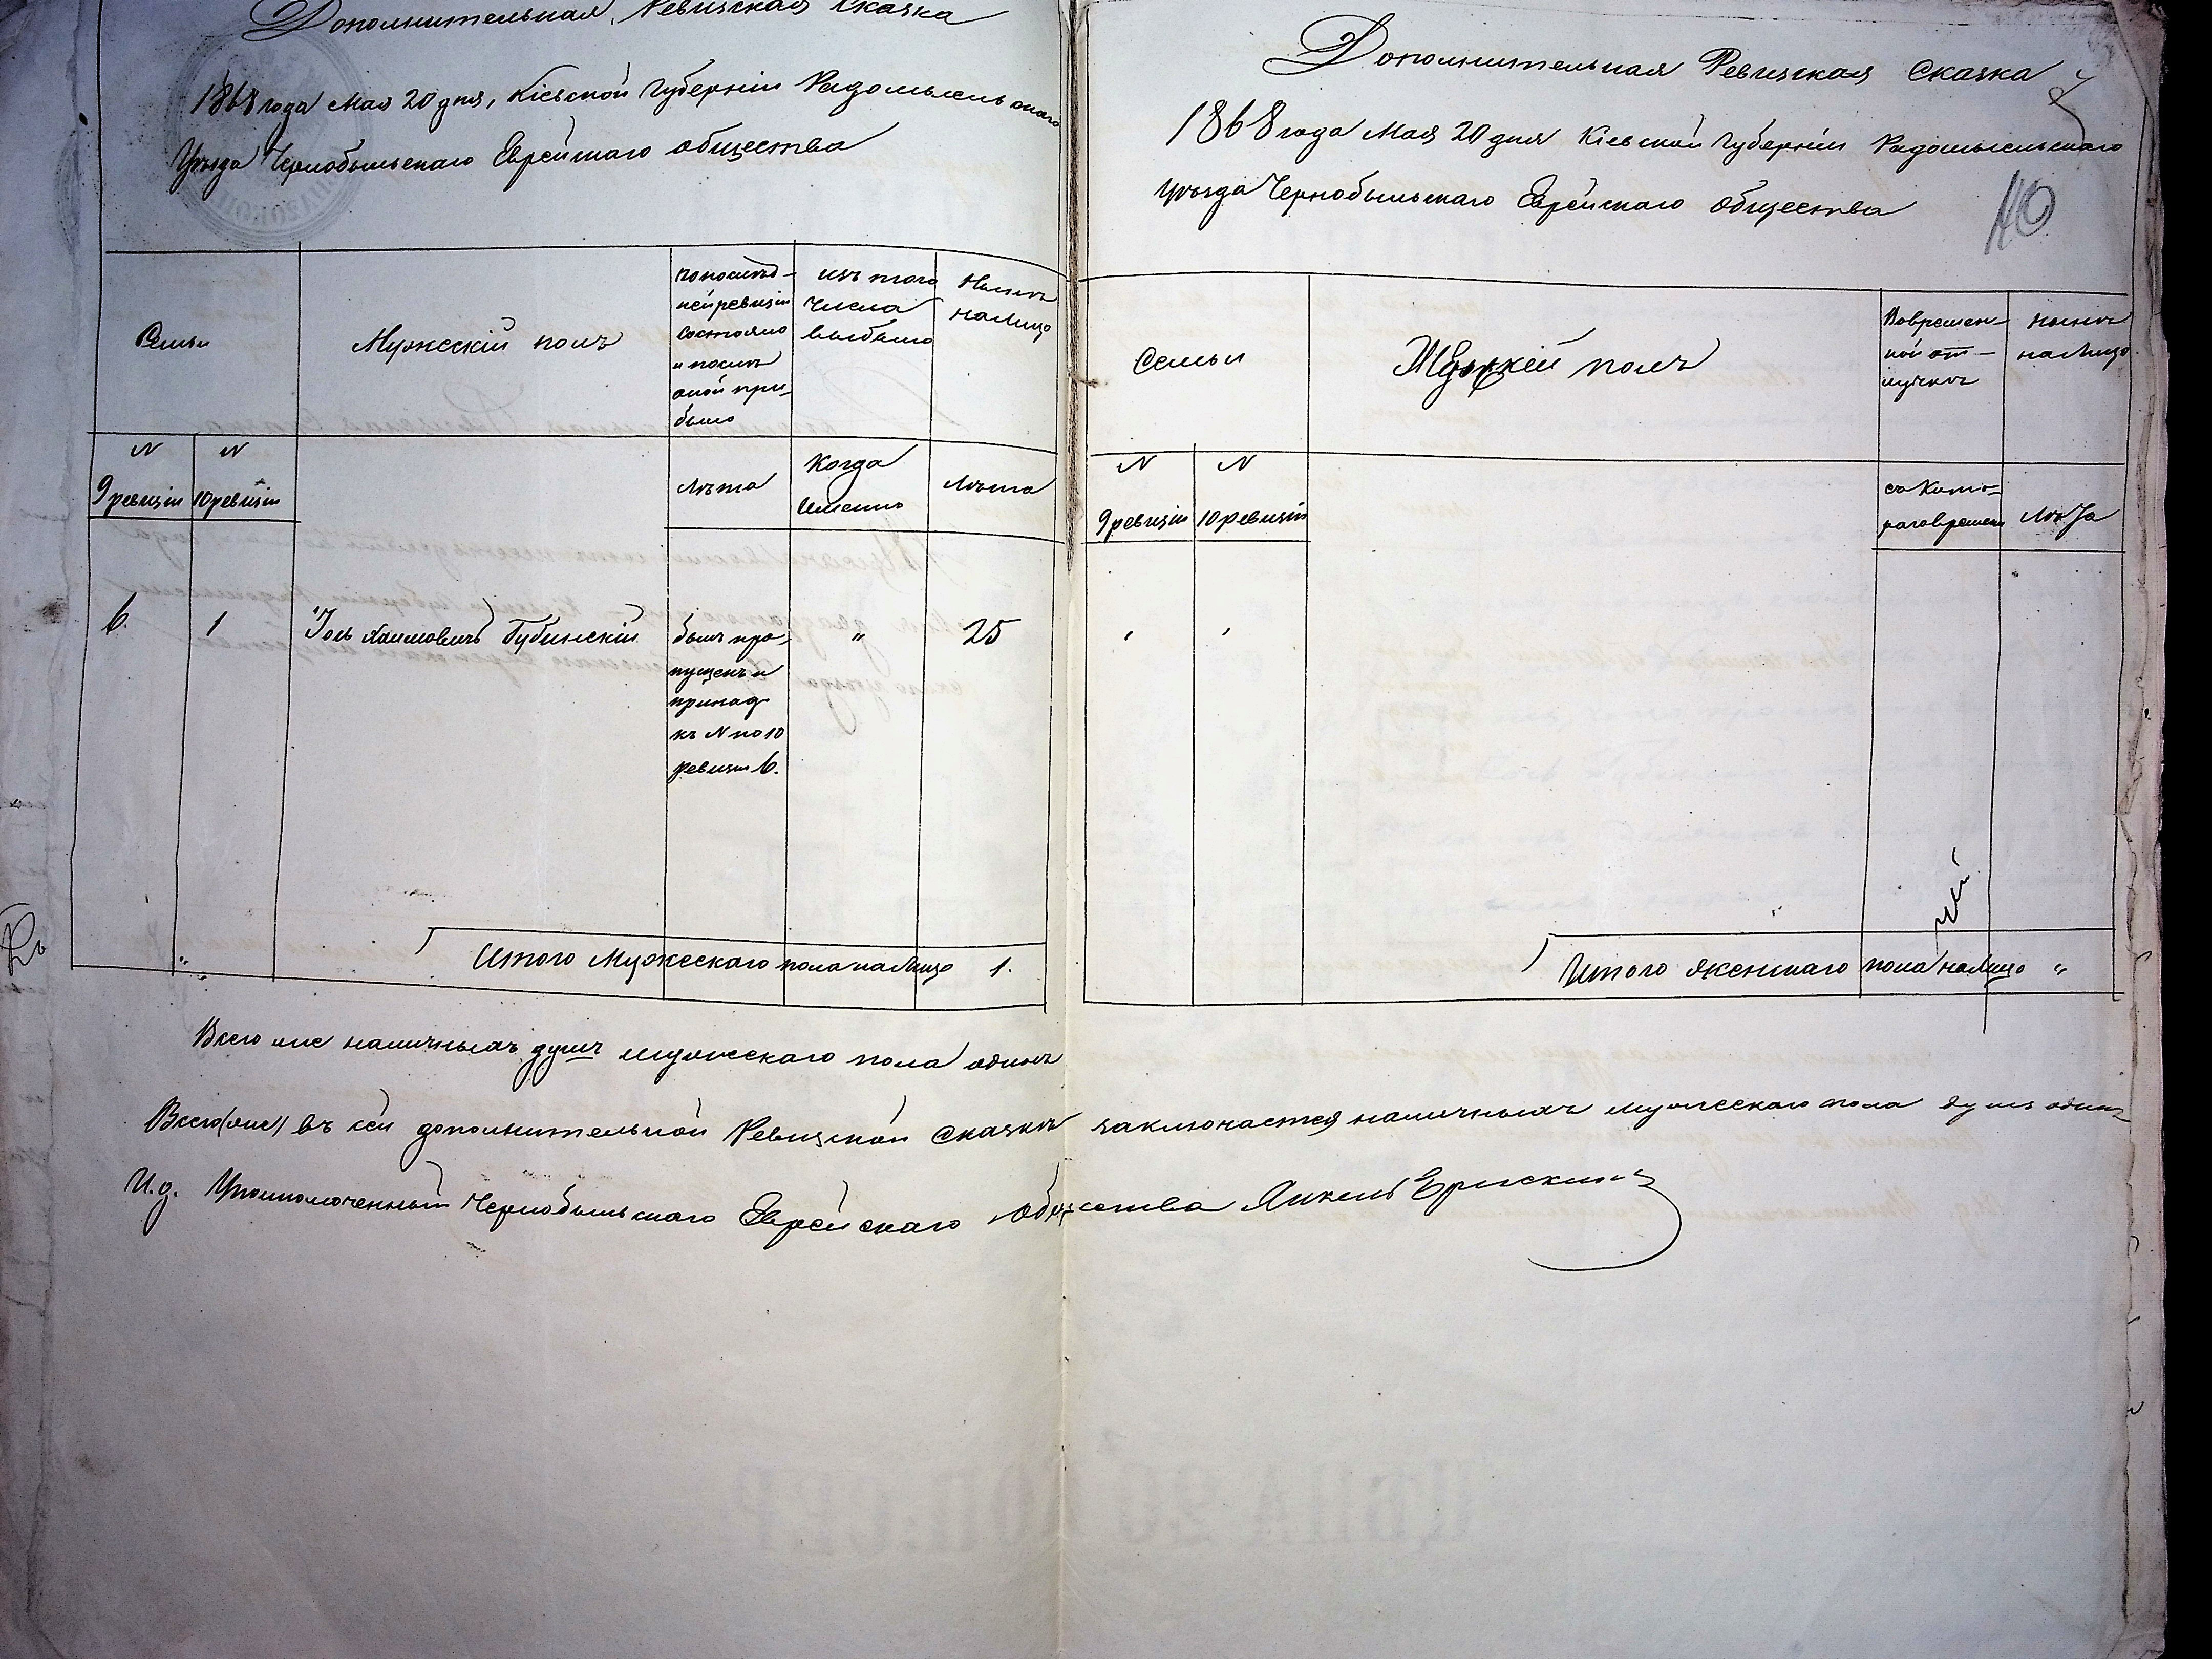 Дополнительная Ревизская Сказка
1868 года Мая 20 дня, Кіевской Губерніи Радомысльскаго
Уѣзда Чернобыльскаго Еврейскаго общества
Семьи
Мужескій полъ
По послѣд-
ней ревизіи
состояло
и послѣ
оной при-
было
изъ того
числа
выбыло
Нынѣ
на лицо
N
9 ревизіи
N
10 ревизіи
Лѣта
Когда
именно
Лѣта
6.
1
Іось Хаимовичъ Губинскій
былъ про-
пущенъ и
принад
къ N по 10
ревизіи 6.
"
25
Итого Мужескаго пола на лицо 1.
Дополнительная Ревизская Сказка
1868 года Мая 20 дня Кіевской Губерніи Радомысльскаго
уѣзда Чернобыльскаго Еврейскаго общества
40
Семьи
Женскій полъ
Во времен-
ной от-
лучкѣ
нынѣ
на лицо
N
9 ревизіи
N
10 ревизіи
съ кото-
раго времени
Лѣта
Итого женскаго пола на лицо "
Всего же наличныхъ душъ мужескаго пола одинъ
Всего (же) въ сей дополнительной Ревизской Сказкѣ заключается наличныхъ мужескаго пола душъ одинъ
И.д. Уполномоченный Чернобыльскаго Еврейскаго Общества Янкель